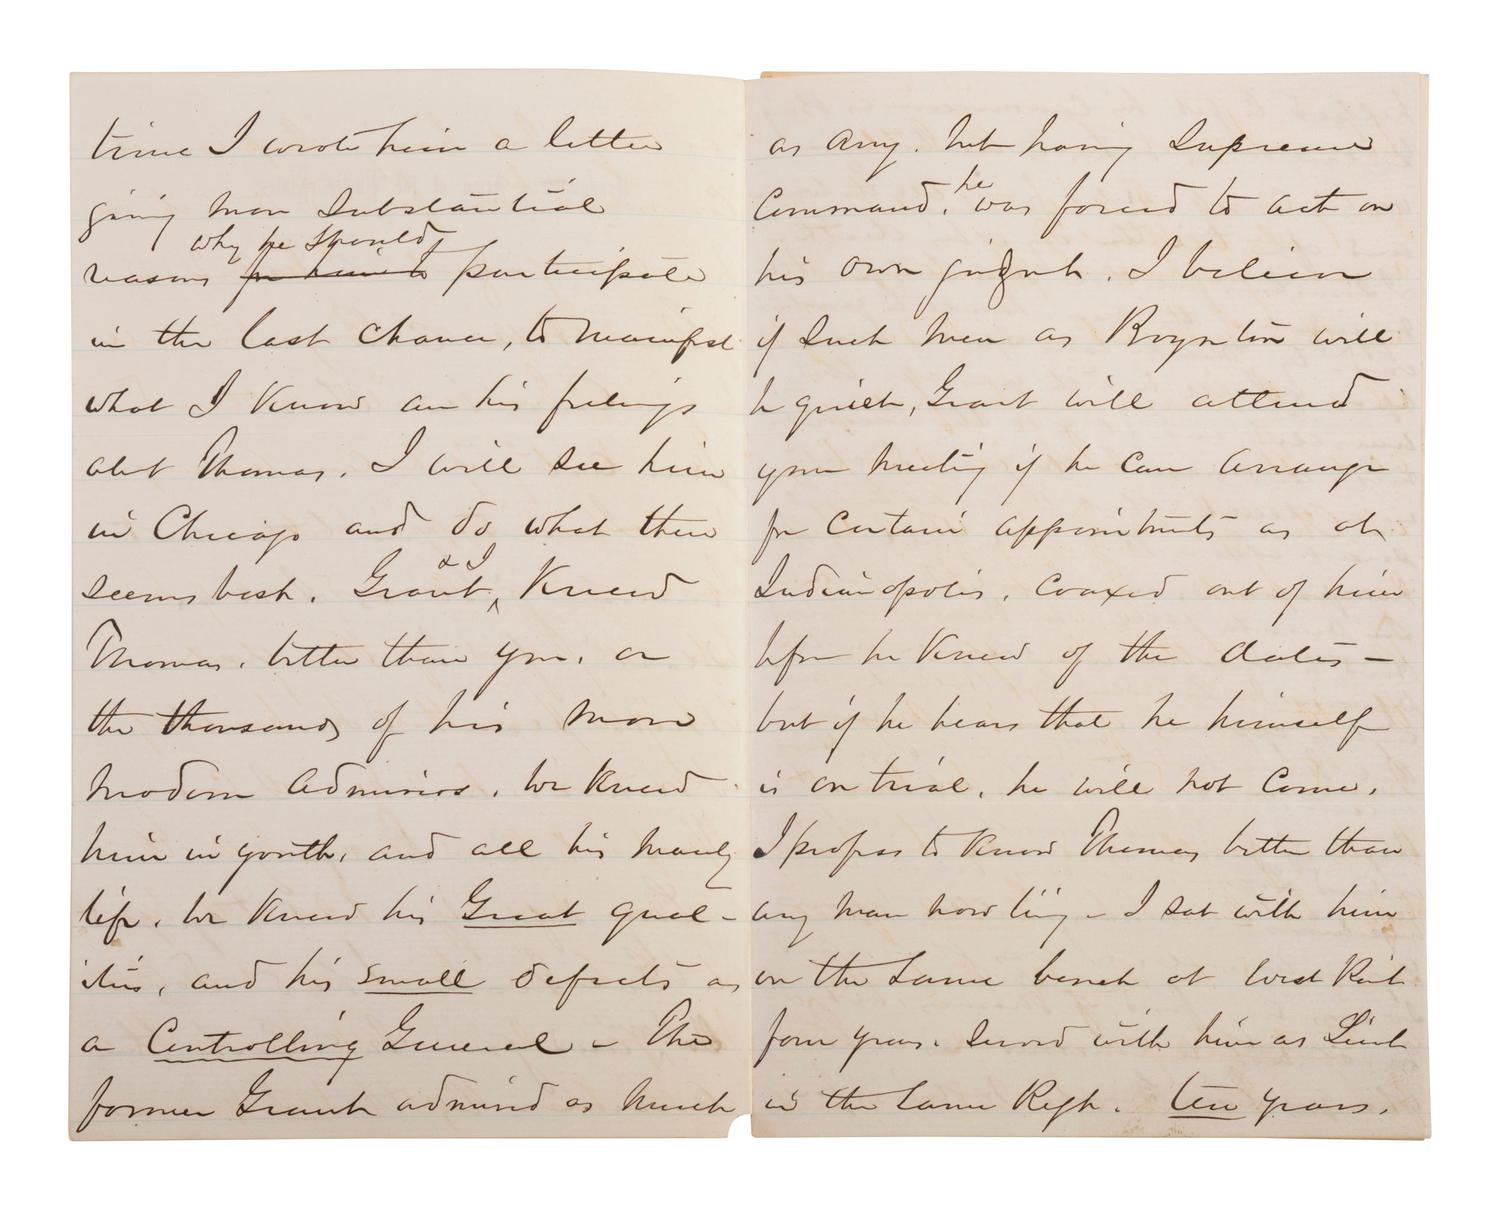 time I wrote him a letter
giving more substantial
why he should
reasons for him to participate
in the last chance, to manifest
what I know are his feelings
abt Thomas. I will see him
in Chicago and do what then
& I
seems best. Grant, knew
Thomas, better than you, or
the thousands of his more
modern admirers. We knew
him in youth, and all his manly
life. We knew his Great qual-
ities, and his small defects as
a Controlling General - The
former Grant admired as much
as any. but having Supreme
he
Command, was forced to act on
his own judgmt. I believe
if such men as Boynton will
be quiet, Grant will attend
your meeting if he can arrange
for certain appointmts as at
Indianapolis, coaxed out of him
before he knew of the dates -
but if he hears that he himself
is on trial, he will not come.
I profess to know Thomas better than
any man now livig - I sat with him
on the same bench at West Point
four years. Served with him as Lieut
in the same Regt. ten years,